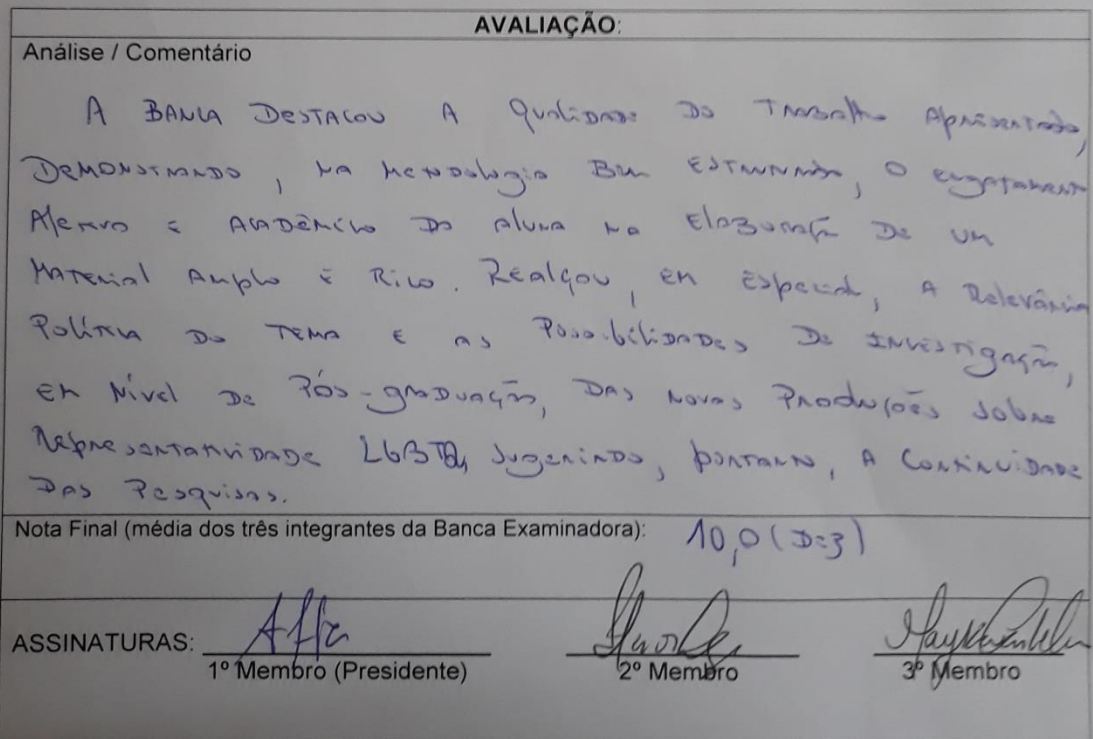 AVALIAÇÃO:
Análise / Comentário
A BANCA DESTACOU A QUALIDADE DO TRABALHO APRESENTADO,
DEMONSTRANDO, NA METODOLOGIA BEM ESTRUTURADA, O ENGAJAMENTO
AFETIVO E ACADÊMICO DA ALUNA NA ELABORAÇÃO DE UM
MATERIAL AMPLO E RICO. REALÇOU, EM ESPECIAL, A RELEVÂNCIA
POLÍTICA DO TEMA E AS POSSIBILIDADES DE INVESTIGAÇÃO,
EM NÍVEL DE PÓS-GRADUAÇÃO, DAS NOVAS PRODUÇÕES SOBRE
REPRESENTATIVIDADE LGBTQ, SUGERINDO, PORTANTO, A CONTINUIDADE
DAS PESQUISAS.
Nota Final (média dos três integrantes da Banca Examinadora): 10,0 (DEZ)
ASSINATURAS:
1º Membro (Presidente) 2º Membro 3º Membro